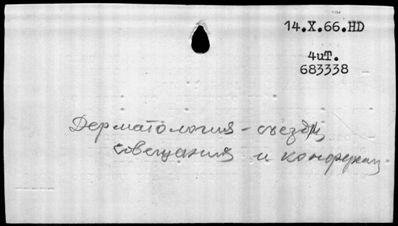 14.X.66.HD
4иТ.
683338
Дерматология - съезды,
совещания и конференц.